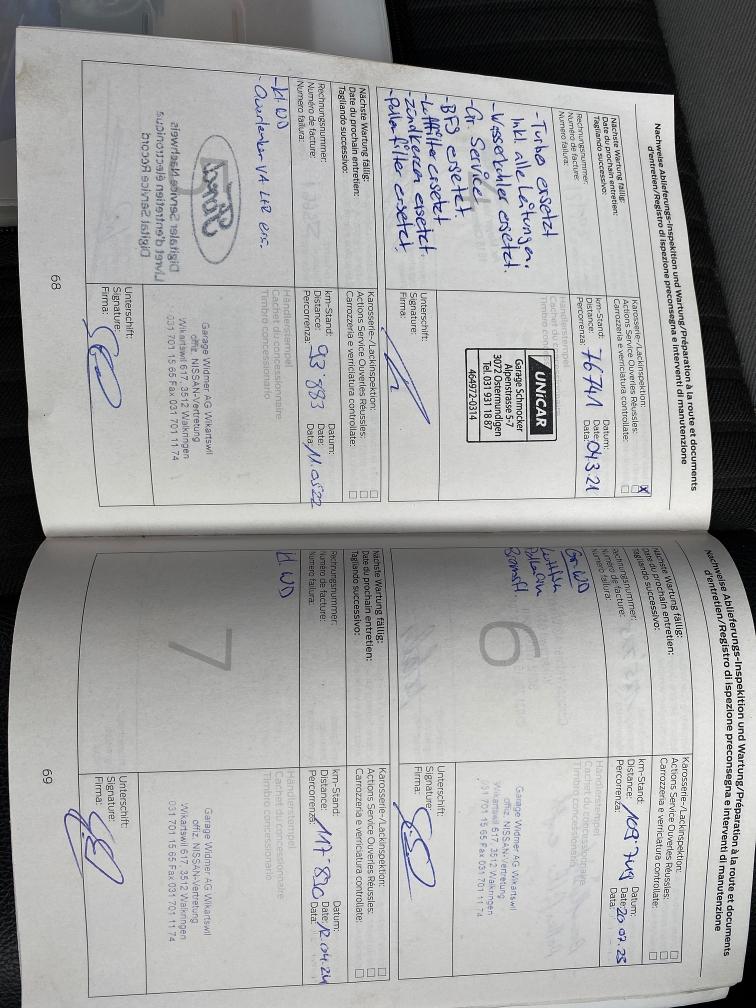 Nachweise Ablieferungs-Inspektion und Wartung/Préparation à la route et documents
d'entretien/Registro di ispezione preconsegna e interventi di manutenzione
Nächste Wartung fällig:
Date du prochain entretien:
Tagliando successivo:
Karosserie-/Lackinspektion:
Actions Service Ouvertes Réussies:
Carrozzeria e verniciatura controllate:
X
Rechnungsnummer:
Numéro de facture:
Numero fattura:
km-Stand:
Distance:
Percorrenza:
76741
Datum:
Date:
Data:
04.3.21
- Turbo ersetzt
Inkl. alle Leitungen.
- Wasserkühler ersetzt.
- Gr. Service
- BFS ersetzt.
- Luftfilter ersetzt.
- Zündkerzen ersetzt.
- Pollenfilter ersetzt
Händlerstempel
Cachet du concessionnaire
Timbro concessionario
UNICAR
Garage Schmocker
Alpenstrasse 5-7
3072 Ostermundigen
Tel. 031 931 18 87
464972-0314
Unterschrift:
Signature:
Firma:
Nächste Wartung fällig:
Date du prochain entretien:
Tagliando successivo:
Karosserie-/Lackinspektion:
Actions Service Ouvertes Réussies:
Carrozzeria e verniciatura controllate:
Rechnungsnummer:
Numéro de facture:
Numero fattura:
km-Stand:
Distance:
Percorrenza:
93'883
Datum:
Date:
Data:
11.05.22
- kl WD
- Querlenker VA L+R ers.
Händlerstempel
Cachet du concessionnaire
Timbro concessionario
Digitaler Service Nachweis
Livret d'entretien électronique
Digital Service Record
Garage Widmer AG Wikartswil
offiz. NISSAN-Vertretung
Wikartswil 617, 3512 Walkringen
031 701 15 65 Fax 031 701 11 74
Unterschrift:
Signature:
Firma:
68
Nachweise Ablieferungs-Inspektion und Wartung/Préparation à la route et documents
d'entretien/Registro di ispezione preconsegna e interventi di manutenzione
Nächste Wartung fällig:
Date du prochain entretien:
Tagliando successivo:
Karosserie-/Lackinspektion:
Actions Service Ouvertes Réussies:
Carrozzeria e verniciatura controllate:
Rechnungsnummer:
Numéro de facture:
Numero fattura:
km-Stand:
Distance:
Percorrenza:
109'749
Datum:
Date:
Data:
20.02.23
Gr. WD
Luftfilter
Pollenfi
Bremsfl.
6
Händlerstempel
Cachet du concessionnaire
Timbro concessionario
Garage Widmer AG Wikartswil
offiz. NISSAN-Vertretung
Wikartswil 617, 3512 Walkringen
031 701 15 65 Fax 031 701 11 74
Unterschrift:
Signature:
Firma:
Nächste Wartung fällig:
Date du prochain entretien:
Tagliando successivo:
Karosserie-/Lackinspektion:
Actions Service Ouvertes Réussies:
Carrozzeria e verniciatura controllate:
Rechnungsnummer:
Numéro de facture:
Numero fattura:
km-Stand:
Distance:
Percorrenza:
117'830
Datum:
Date:
Data:
12.04.24
kl WD
7
Händlerstempel
Cachet du concessionnaire
Timbro concessionario
Garage Widmer AG Wikartswil
offiz. NISSAN-Vertretung
Wikartswil 617, 3512 Walkringen
031 701 15 65 Fax 031 701 11 74
Unterschrift:
Signature:
Firma:
69